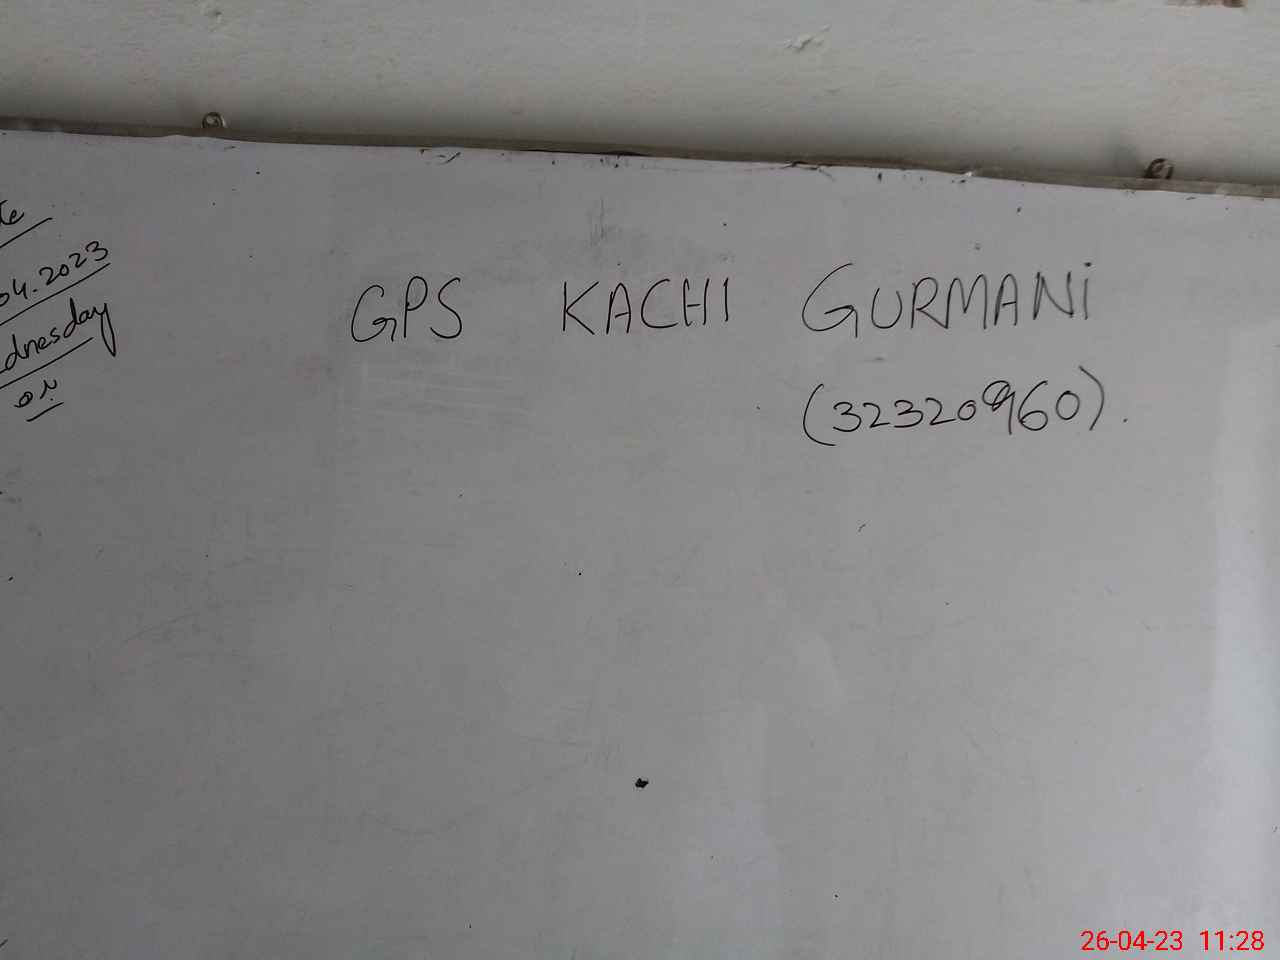 04.2023
GPS KACHI GURMANi
(32320960).
26-04-23 11:28